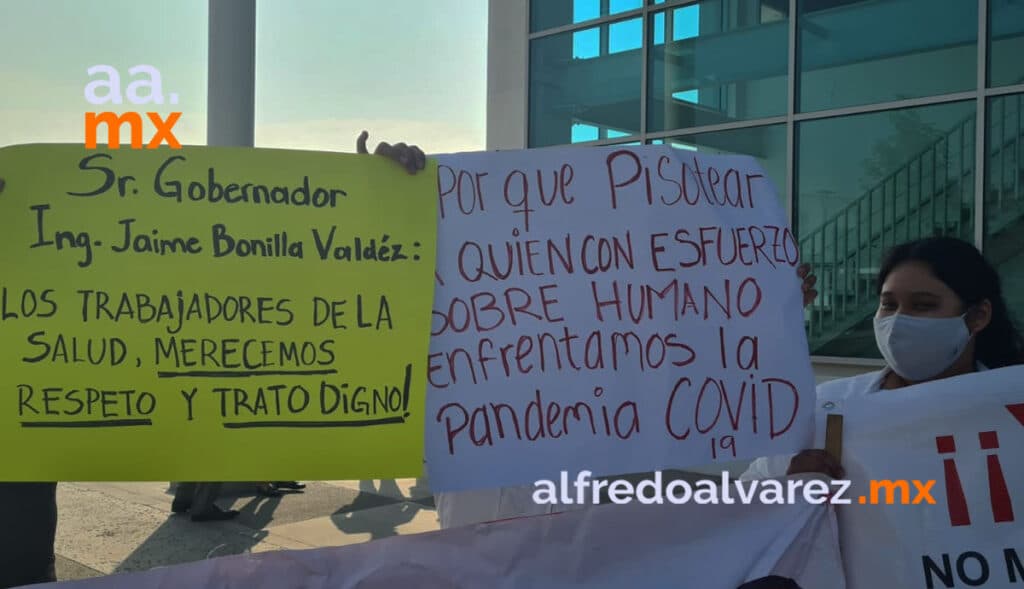 aa.
mx
Sr. Gobernador
Ing. Jaime Bonilla Valdéz:
LOS TRABAJADORES DE LA
SALUD, MERECEMOS
RESPETO Y TRATO DIGNO!
Por que Pisotear
A QUIEN CON ESFUERZO
SOBRE HUMANO
enfrentamos la
pandemia COVID
19
alfredoalvarez.mx
¡¡
NO